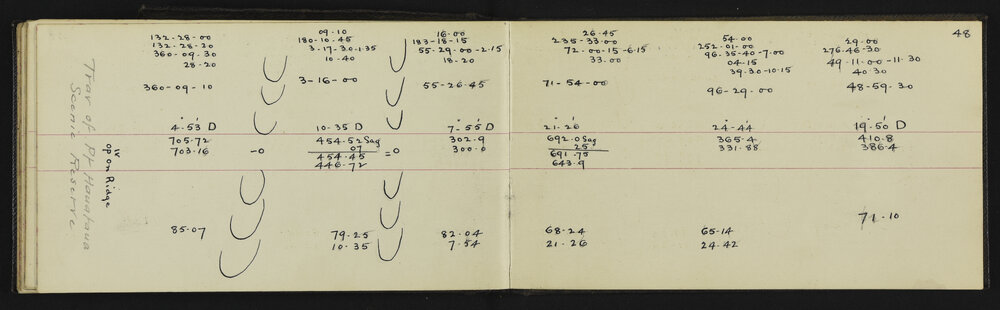 48
Trav of Pt Hauataua
Scenic Reserve
IV
op on Ridge
132-28-00
132-28-20
360-09-30
28-20
360-09-10
4-53 D
705.72
703.16
-0
85.07
09.10
180-10.45
3-17-30-1.35
10-40
3-16-00
10-35 D
454.52 Sag
07
454.45
446.72
=0
79.25
10.35
16.00
183-18-15
55-29-00-2.15
18-20
55-26.45
7-55 D
302.9
300.0
82.04
7.54
26.45
235-33.00
72.00-15-6.15
33.00
71-54-00
21.26
692.0 Sag
25
691.75
643.9
68-24
21-26
54.00
252-01-00
96.35-40-7.00
04-15
39.30-10.15
96-29-00
24-44
365.4
331.88
65-14
24.42
29.00
276.46-30
49-11-00-11.30
40.30
48-59.30
19.50 D
410.8
386.4
71-10